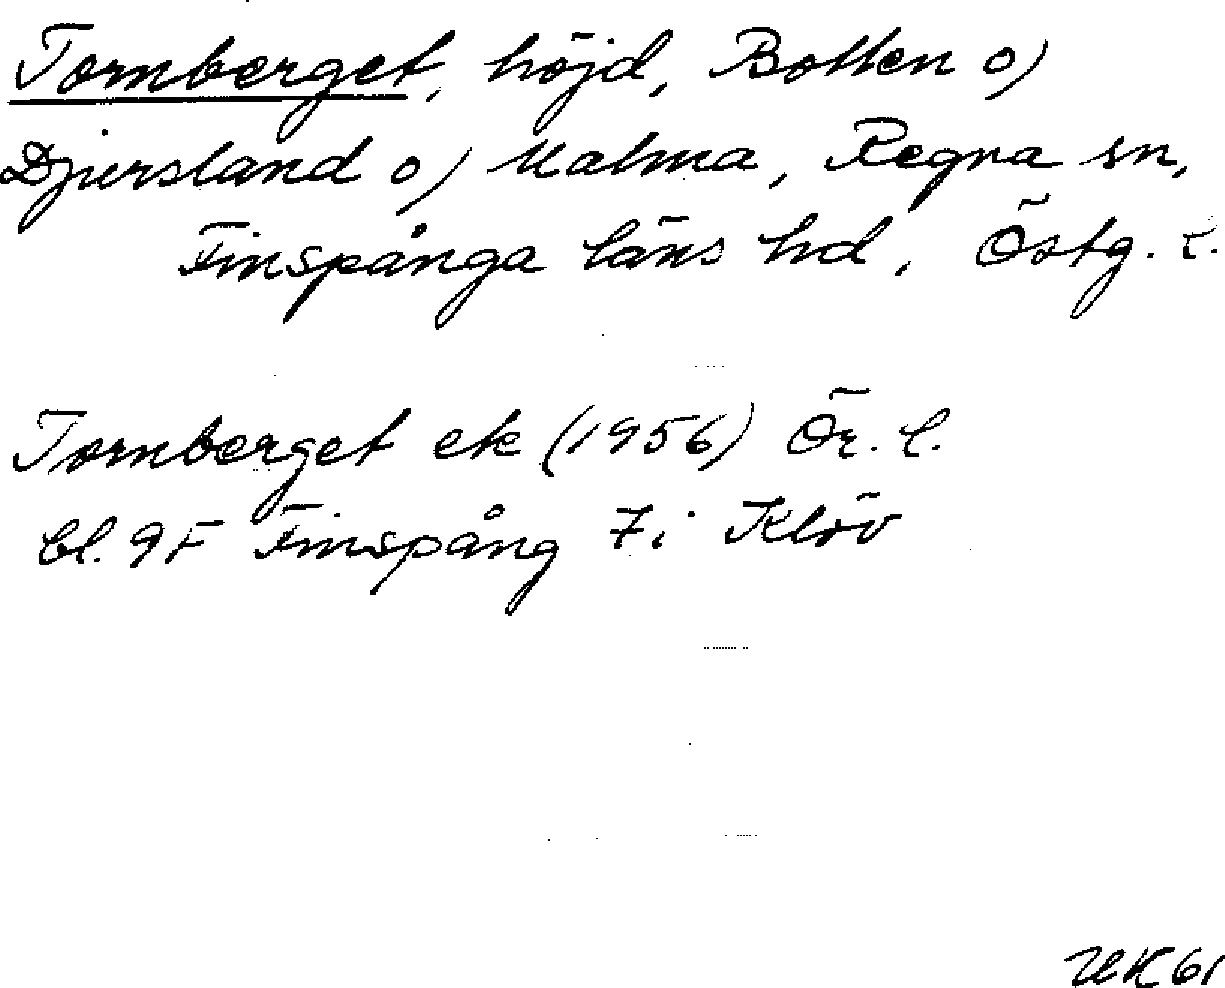 Tornberget, höjd, Botten o)
Djursland o) Malma, Regna sn,
Finspånga läns hd, Östg. l.
Tornberget ek (1956) Ör. l.
bl. 9F Finspång 7i Klöv
UK 61